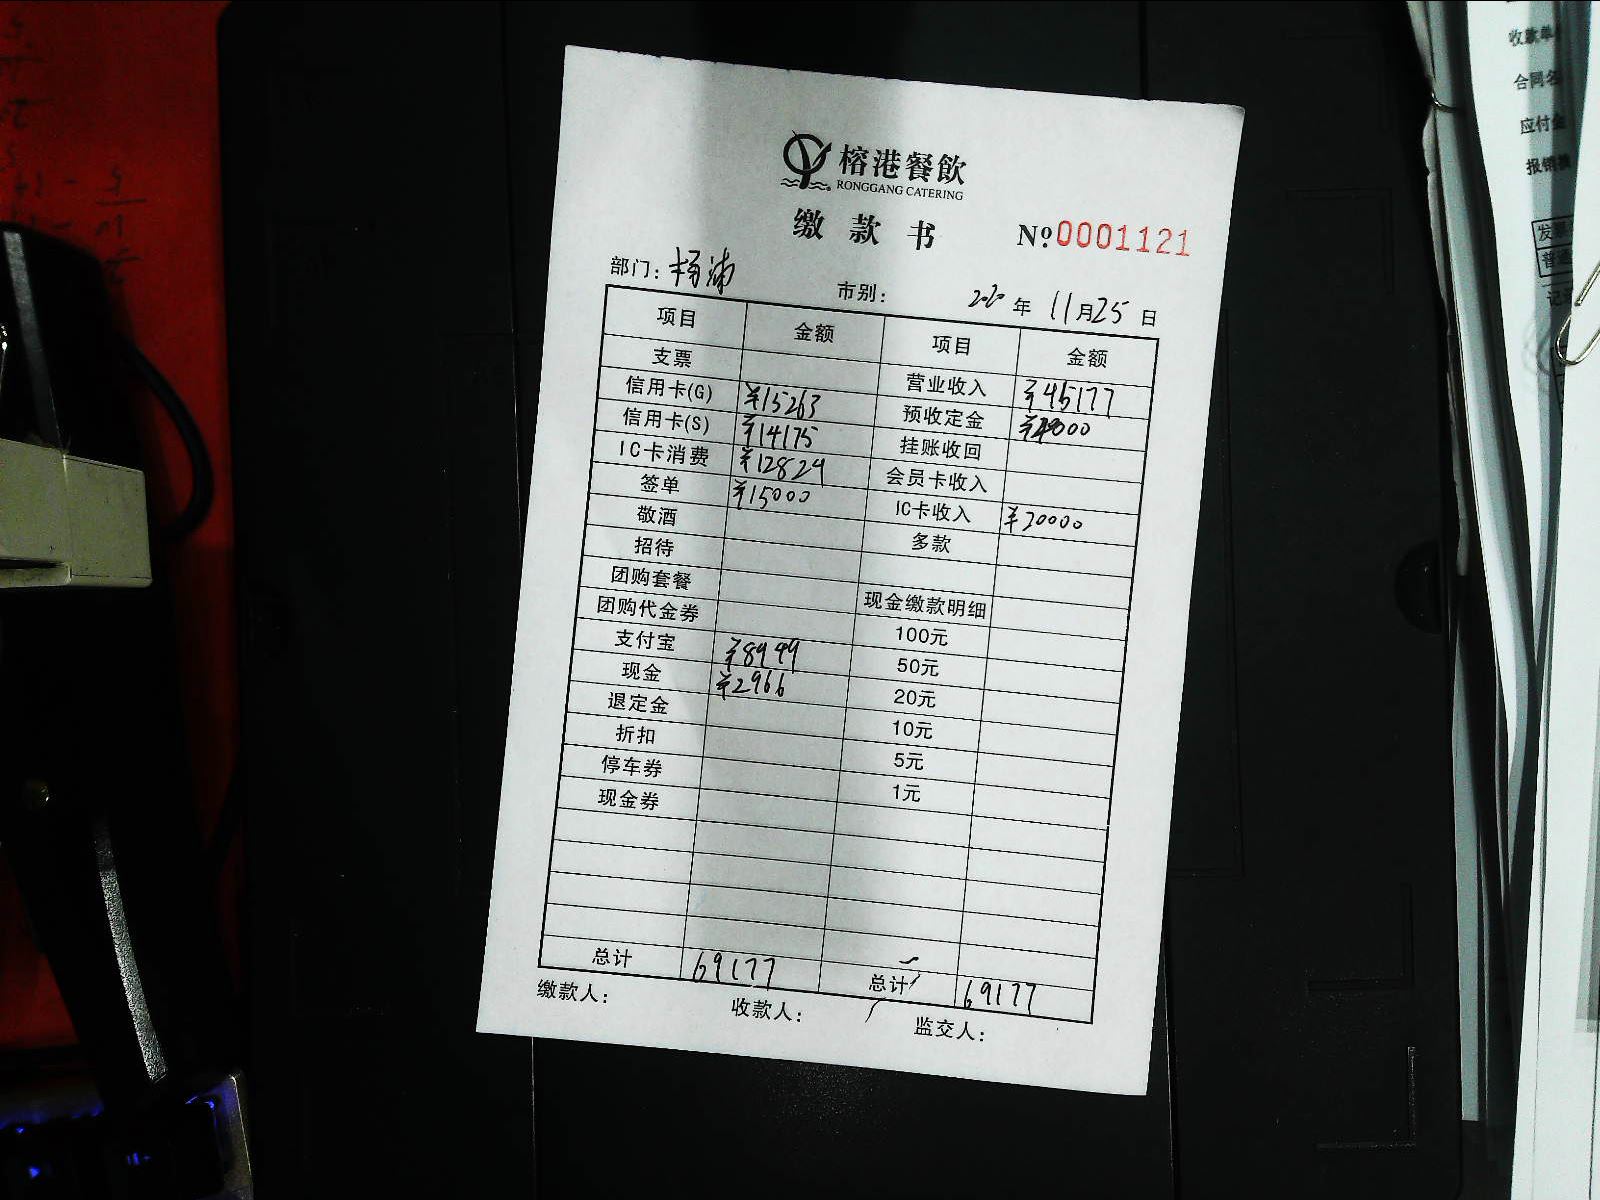 榕港餐飲
RONGGANG CATERING
缴款书 Nº0001121
部门: 杨浦 市别: 2020年 11月25日
项目 金额 项目 金额
支票 营业收入 ¥45177
信用卡(G) ¥15263 预收定金 ¥4000
信用卡(S) ¥14175 挂账收回
IC卡消费 ¥12824 会员卡收入
签单 ¥15000 IC卡收入 ¥20000
敬酒 多款
招待
团购套餐 现金缴款明细
团购代金券 100元
支付宝 ¥8949 50元
现金 ¥2966 20元
退定金 10元
折扣 5元
停车券 1元
现金券
总计 69177 总计 69177
缴款人: 收款人: 监交人:
收款单
合同名
应付金
报销